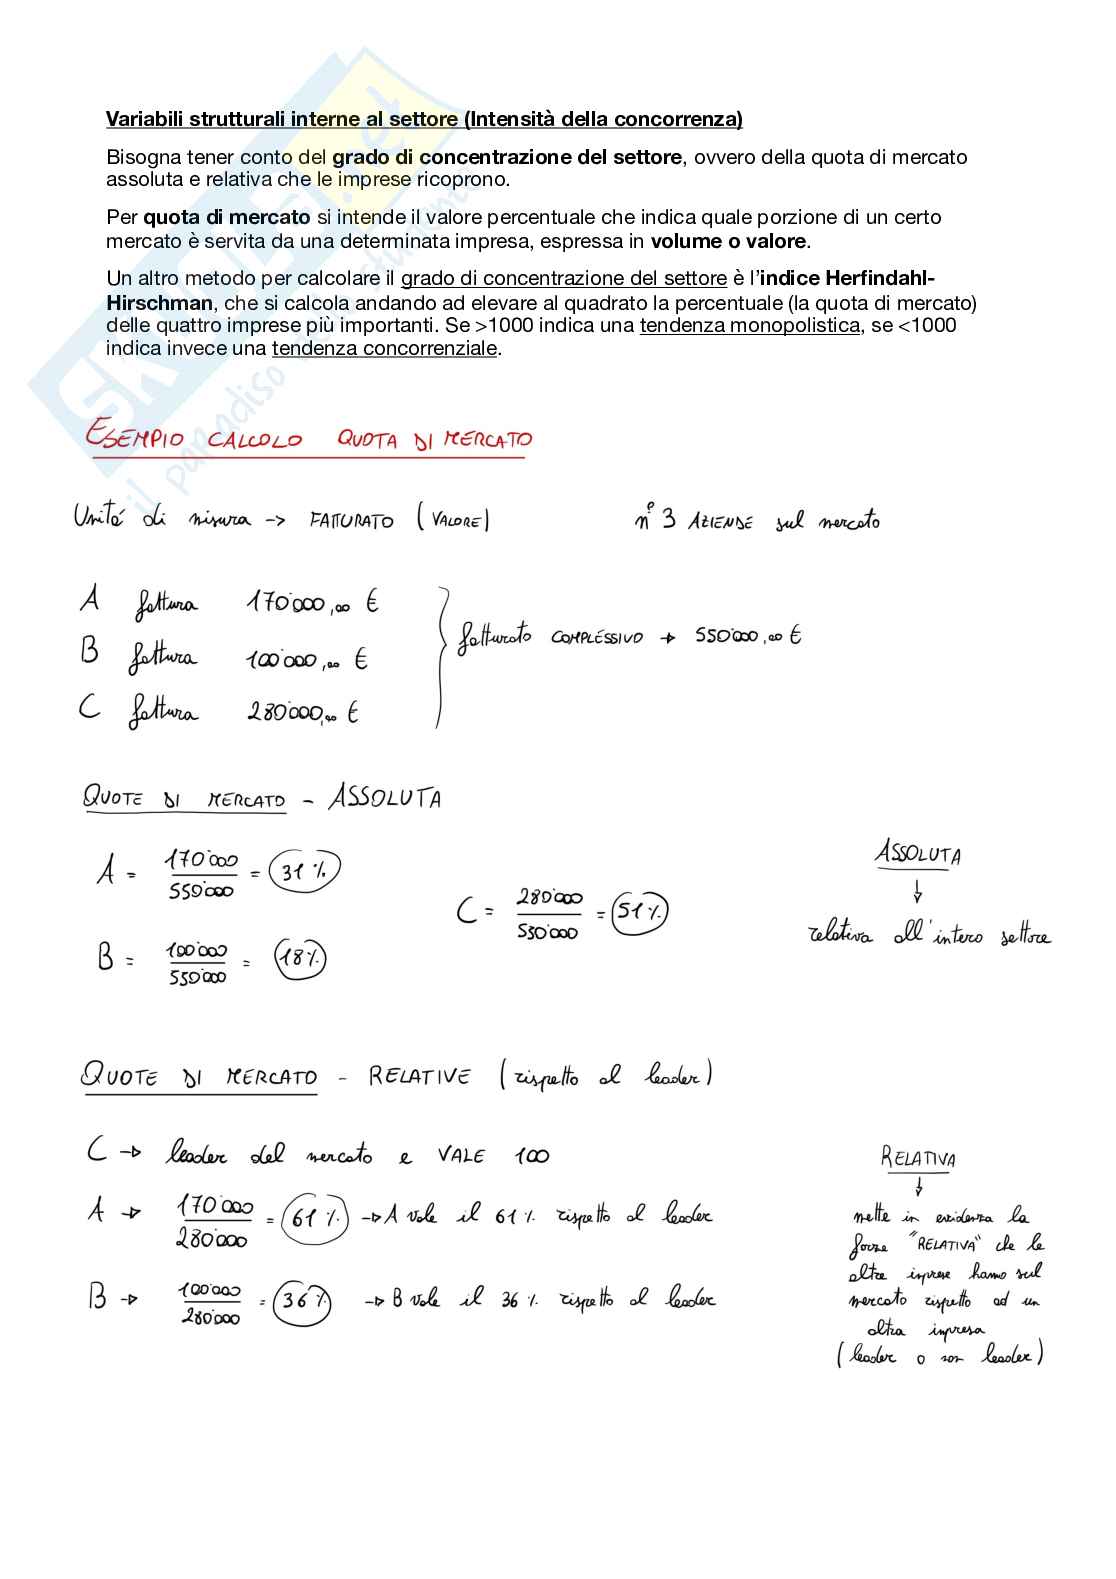 Variabili strutturali interne al settore (Intensità della concorrenza)
Bisogna tener conto del grado di concentrazione del settore, ovvero della quota di mercato
assoluta e relativa che le imprese ricoprono.
Per quota di mercato si intende il valore percentuale che indica quale porzione di un certo
mercato è servita da una determinata impresa, espressa in volume o valore.
Un altro metodo per calcolare il grado di concentrazione del settore è l'indice Herfindahl-
Hirschman, che si calcola andando ad elevare al quadrato la percentuale (la quota di mercato)
delle quattro imprese più importanti. Se >1000 indica una tendenza monopolistica, se <1000
indica invece una tendenza concorrenziale.
SKUOLA.net
il paradiso dello studente
ESEMPIO CALCOLO QUOTA DI MERCATO
Unità di misura -> FATTURATO (VALORE)
n° 3 AZIENDE sul mercato
A fattura 170'000,00 €
B fattura 100'000,00 €
C fattura 280'000,00 €
fatturato COMPLESSIVO → 550'000,00 €
QUOTE DI MERCATO - ASSOLUTA
A = 170'000 / 550'000 = 31%
B = 100'000 / 550'000 = 18%
C = 280'000 / 550'000 = 51%
ASSOLUTA
↓
relativa all'intero settore
QUOTE DI MERCATO - RELATIVE (rispetto al leader)
C → leader del mercato e VALE 100
A → 170'000 / 280'000 = 61% → A vale il 61% rispetto al leader
B → 100'000 / 280'000 = 36% → B vale il 36% rispetto al leader
RELATIVA
↓
mette in evidenza la
forza "RELATIVA" che le
altre imprese hanno sul
mercato rispetto ad un
altra impresa
(leader o non leader)